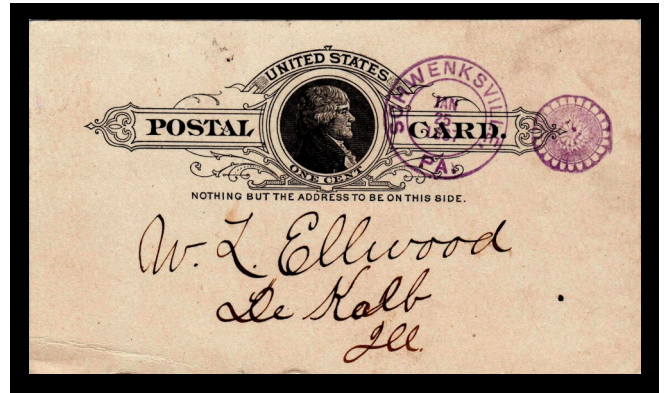 UNITED STATES
POSTAL CARD.
ONE CENT
SCHWENKSVILLE
JAN
25
1887
PA.
NOTHING BUT THE ADDRESS TO BE ON THIS SIDE.
W. L. Ellwood
De Kalb
Ill.